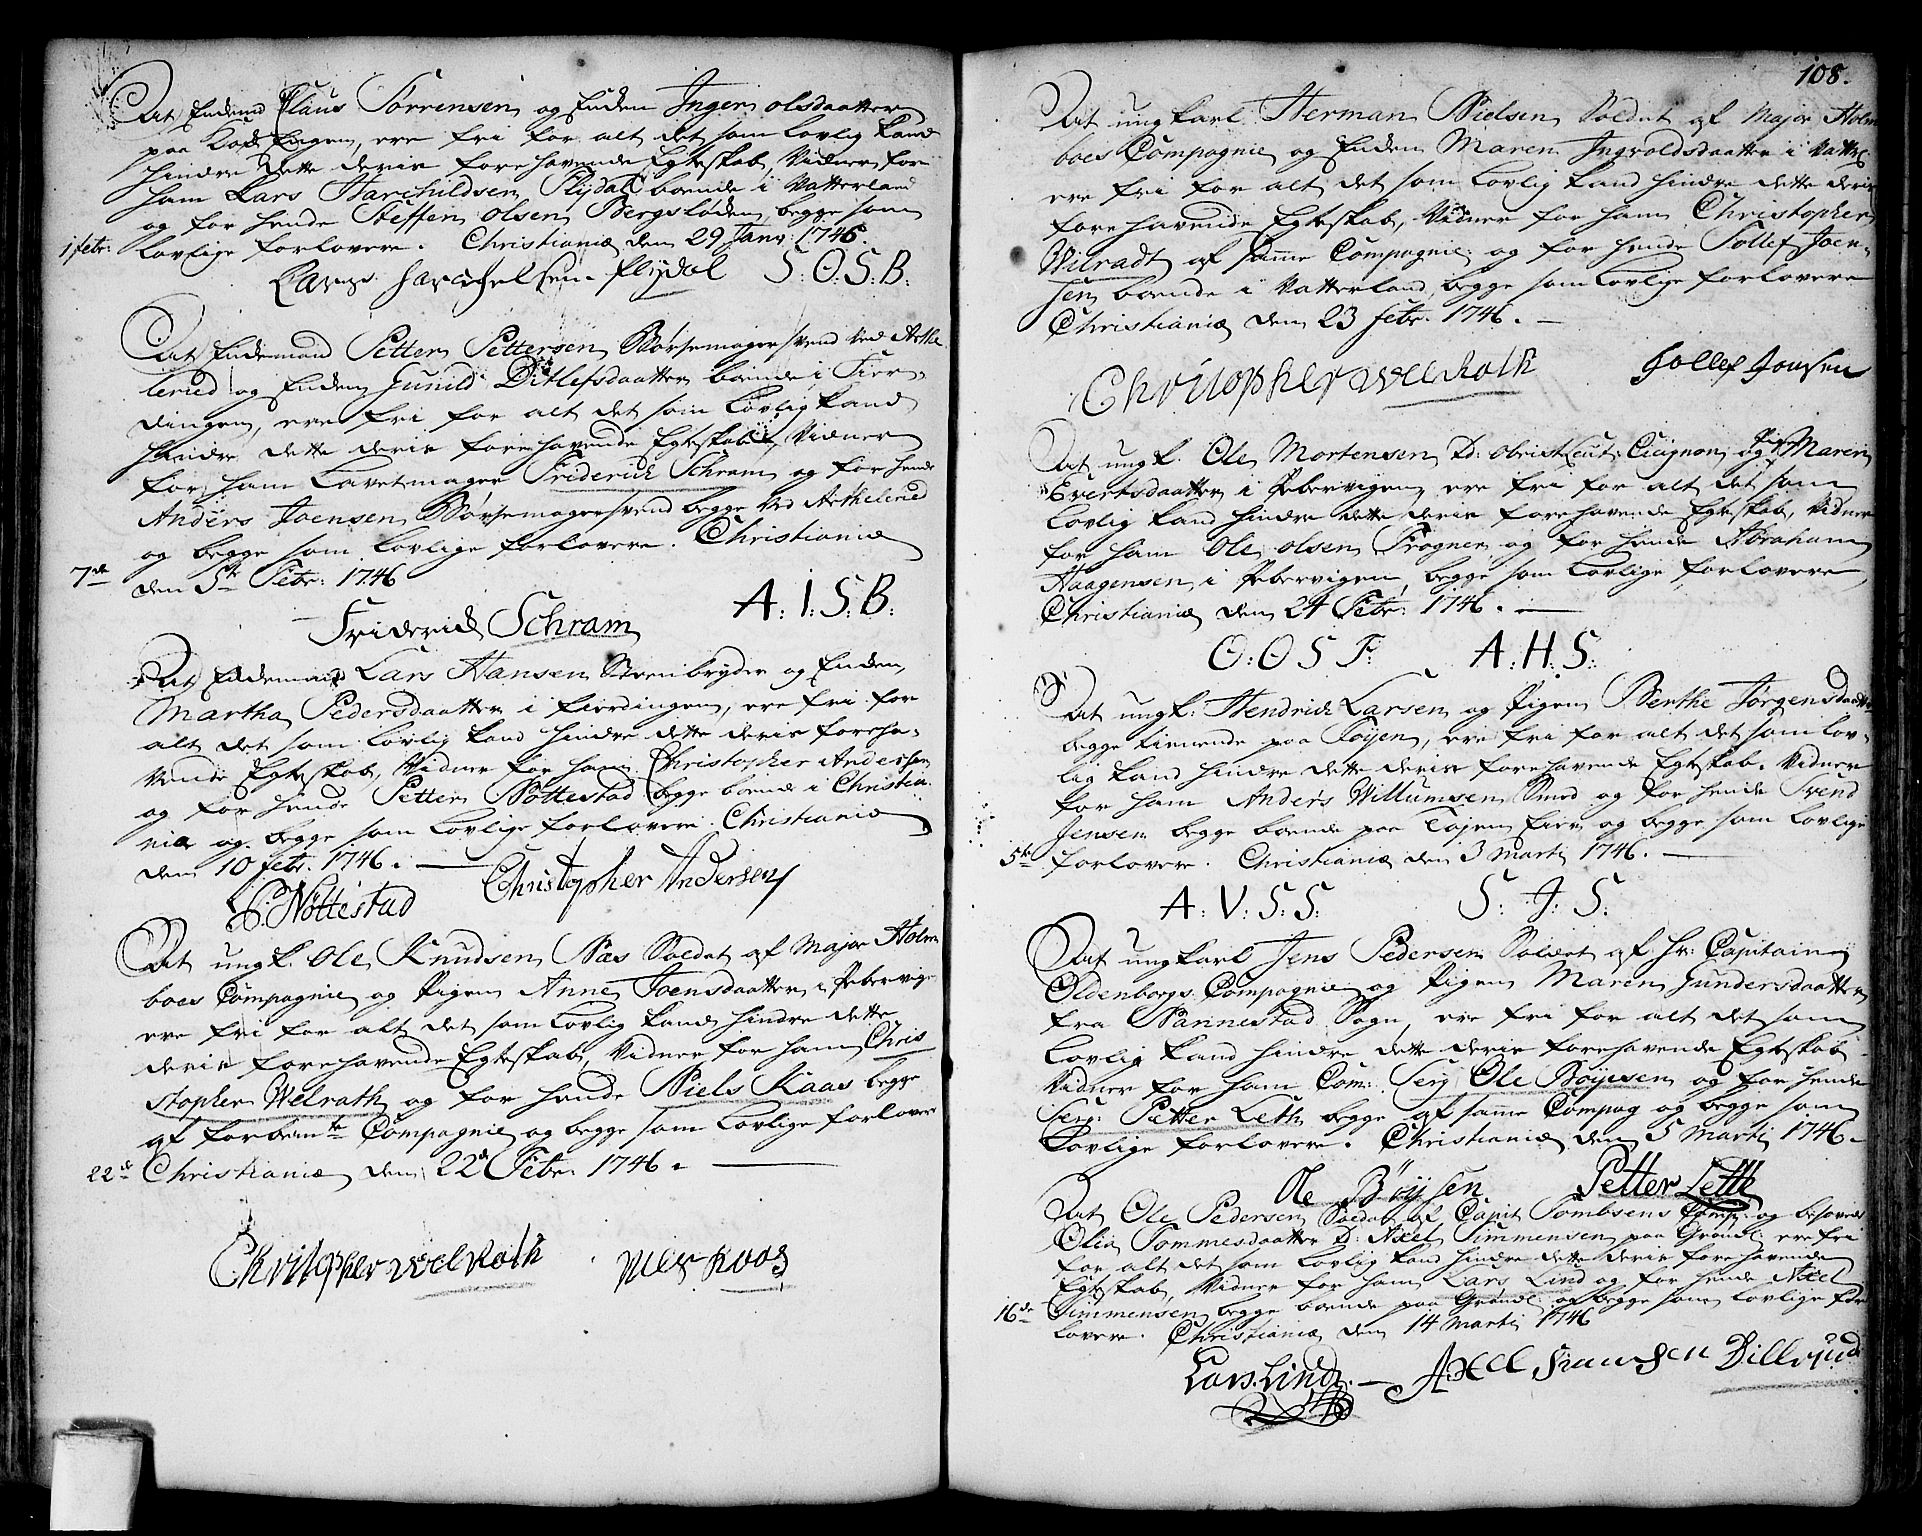 At Enkemand Claus Sørrensen og Enken Inger olsdaatter
paa Engen, ere fri for alt det som lovlig kand
hindre dette deris forehavende Egteskab, Vidner for
ham Lars Flydal boende i Vatterland
og for hende Steffen olsen Bergsløden, begge som
1 febr: lovlige forlovere. Christiania den 29 Janv: 1746.
Flydal S: O: S: B:
At Enkemand Petter Pettersen Børsemagersvend ved Arthe
leried og Enken Gunild Ditlefsdaatter boende i Fier-
dingen, ere fri for alt det som lovlig kand
hindre dette deris forehavende Egteskab, Vidner
for ham Lavetmager Friderich Schram og for hende
Anders Joensen Børsemagersvend begge ved Arthileried
og begge som lovlige forlovere. Christiania
7de den 5te Febr: 1746
Friderich Schram A: I: S: B:
At Enkemand Lars Hansen Steenbryder og Enken
Martha Pedersdaatter i fierdingen, ere fri for
alt det som lovlig kand hindre dette deris foreha-
vende Egteskab, Vidner for ham Christopher Andersen
og for hende Petter Nøttestad begge boende i Christia-
nia og begge som lovlige forlovere. Christiania
den 10 febr. 1746.
P: Nøttestad Christopher Andersen
At ungk. Ole Knudsen Næs Soldat af Major Holm
boes Compagnie og Pigen Anne Joensdaatter i Pebervige
ere fri for alt det som lovlig kand hindre dette
deris forehavende Egteskab, Vidner for ham Chris
stopher Welrath og for hende Niels Kaas begge
af forbemte Compagnie og begge som lovlige forlovere
22de Christiania den 22de Febr. 1746.
Christopher Welroth Niels Koos
108.
At ungkarl Herman Nielsen Soldat af Major Holm
boes Compagnie og Enken Maren Ingvoldsdaatter i Vatterl
ere fri for alt det som lovlig kand hindre dette deris
forehavende Egteskab, Vidner for ham Christopher
Wilradt af samme Compagnie og for hende Tollef Joen-
sen boende i Vatterland, begge som lovlige forlovere
Christiania den 23 febr. 1746.
Christopher Welroth Tollef Jonsen
At ungk. Ole Mortensen T: obristLeut: Cicignon og Pigen Maren
Evertsdaatter i Pebervigen, ere fri for alt det som
lovlig kand hindre dette deris forehavende Egteskab, Vidner
for ham Ole olsen Frogner og for hende Abraham
Haagensen i Pebervigen, begge som lovlige forlovere
Christiania den 24 Febr: 1746.
O: O S F: A: H: S:
At ungk: Hendrich Larsen og Pigen Berthe Jørgensdaatter
begge tienende paa Tøyen, ere fri for alt det som lov-
lig kand hindre dette deris forehavende Egteskab. Vidner
for ham Anders Willumsen Smed og for hende Svend
Jensen begge boende paa Tøjen Eier og begge som lovlige
5te forlovere. Christiania den 3 Martj 1746.
A: V: S: S: S: J: S:
At ungkarl Jens Pedersen Soldat af Hr: Capitain
Oldenborgs Compagnie og Pigen Maren Gundersdaatter
fra Nannestad Sogn, ere fri for alt det som
lovlig kand hindre dette deris forehavende Egteskab
Vidner for ham Com: Serg Ole Bøyesen og for hende
Serg: Petter Leth begge af samme Compag og begge som
lovlige forlovere. Christiania den 5 Martj 1746.
Ole Böysen Petter Leth
At Ole Pedersen Soldat af Capit Tombsens Comp: og besovede
Olia Tommesdaatter T: Axel Simmensen paa Grønl: ere fri
for alt det som lovlig kand hindre dette deris forehavende
Egteskab, Vidner for ham Lars Lind og for hende Axel
16de Simmensen begge boende paa Grønl: og begge som lovlige for
lovere. Christiania den 14 Martj 1746
Lars Lind. Axel Dillrud